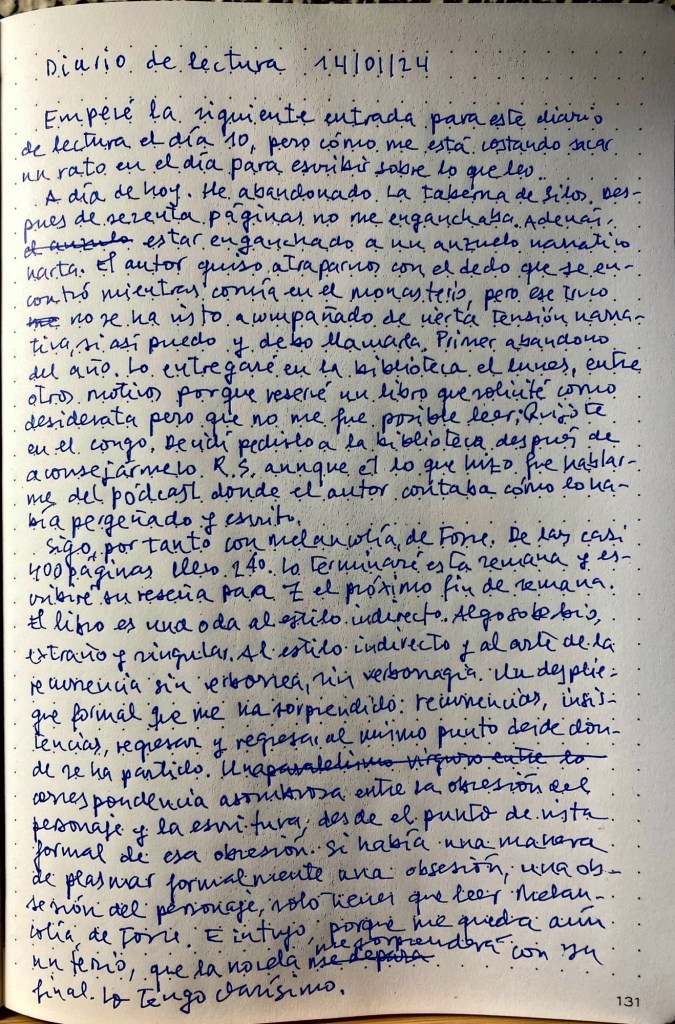 Diario de lectura 14/01/24
Empecé la siguiente entrada para este diario
de lectura el día 10, pero cómo me está costando sacar
un rato en el día para escribir sobre lo que leo.
A día de hoy. He abandonado La taberna de Silos. Des-
pués de sesenta páginas no me enganchaba. Además,
estar enganchado a un anzuelo narrativo
harta. El autor quiso atraparnos con el dedo que se en-
contró mientras comía en el monasterio, pero ese truco
no se ha visto acompañado de cierta tensión narra-
tiva, si así puedo y debo llamarla. Primer abandono
del año. Lo entregaré en la biblioteca el lunes, entre
otros motivos porque reservé un libro que solicité como
desiderata pero que no me fue posible leer, Quijote
en el congo. Decidí pedirlo a la biblioteca después de
aconsejármelo R.S. aunque él lo que hizo fue hablar-
me del pódcast donde el autor contaba cómo lo ha-
bía pergeñado y escrito.
Sigo, por tanto con melancolía, de Fosse. De las casi
400 páginas llevo 240. Lo terminaré esta semana y es-
cribiré su reseña para Z el próximo fin de semana.
El libro es una oda al estilo indirecto. Algo soberbio,
extraño y singular. Al estilo indirecto y al arte de la
recurrencia sin verborrea, sin verbonagia. Un desplie-
gue formal que me ha sorprendido: recurrencias, insis-
tencias, regresar y regresar al mismo punto desde don-
de se ha partido. Una paralelismo riguroso entre lo
correspondencia asombrosa entre la obsesión del
personaje y la escritura, desde el punto de vista
formal de esa obsesión. Si había una manera
de plasmar formalmente una obsesión, una ob-
sesión del personaje, solo tienes que leer Melan-
colía de Fosse. E intuyo, porque me queda aún
un tercio, que la novela me sorprenderá con su
final. Lo tengo clarísimo.
131